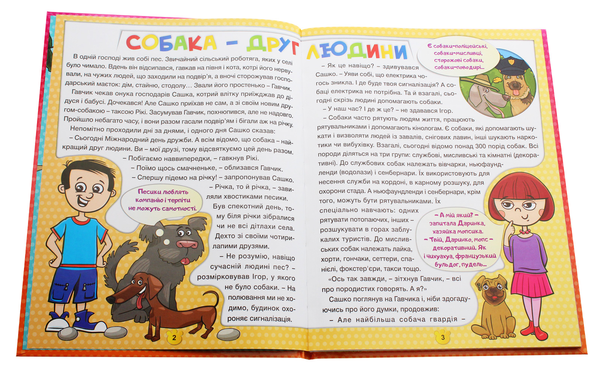 СОБАКА – ДРУГ ЛЮДИНИ
В одній господі жив собі пес. Звичайний сільський роботяга, яких у селі
було чимало. Вдень він відсипався, гавкав на півня і кота, котрі його нерву-
вали, на чужих людей, що заходили на подвір'я, а вночі сторожував госпо-
дарський маєток: дім, стайню, стодолу... Звали його простенько – Гавчик.
Гавчик чекав онука господарів Сашка, котрий влітку приїжджав до ді-
дуся і бабусі. Дочекався! Але Сашко приїхав не сам, а зі своїм новим дру-
гом-собакою – таксою Рікі. Засумував Гавчик, похнюпився, але не надовго.
Пройшло небагато часу, і вони разом гасали подвір'ям і бігали аж на річку.
Непомітно проходили дні за днями, і одного дня Сашко сказав:
– Сьогодні Міжнародний день дружби. А всім відомо, що собака – най-
кращий друг людини. Ви – мої друзі, тому відсвяткуємо цей день разом.
– Побігаємо наввипередки, – гавкнув Рікі.
– Поїмо щось смачненьке, – облизався Гавчик.
– Спершу підемо на річку! – запропонував Сашко.
– Річка, то й річка, – зави-
ляли хвостиками песики.
Був спекотний день, то-
му біля річки зібралися
чи не всі дітлахи села.
Дехто зі своїми чотири-
лапими друзями.
– Не розумію, навіщо
сучасній людині пес? –
розмірковував Ігор, у якого
не було собаки. – На
полювання ми не хо-
димо, будинок охо-
роняє сигналізація.
Песики люблять
компанію і терпіти
не можуть самотності.
2
– Як це навіщо? – здивувався
Сашко. – Уяви собі, що електрика чо-
гось зникла. І де буде твоя сигналізація? А со-
баці електрика не потрібна. Та й взагалі, сьо-
годні скрізь людині допомагають собаки.
– У наш час? І де ж це? – не вірив Ігор.
– Собаки часто рятують людям життя, працюють
рятувальниками і допомагають кінологам. Є собаки, які допомагають шу-
кати і визволяти людей із завалів, снігових лавин, інші шукають нарко-
тики чи вибухівку. Взагалі, сьогодні відомо понад 300 порід собак. Всі
породи діляться на три групи: службові, мисливські та кімнатні (декора-
тивні). До службових собак належать вівчарки, ньюфаунд-
ленди (водолази) і сенбернари. Їх використовують для
несення служби на кордоні, в карному розшуку, для
охорони стада. А ньюфаундленди і сенбернари, крім
того, можуть бути рятувальниками. Їх
спеціально навчають: одних
рятувати потопаючих, інших –
розшукувати в горах заблу-
калих туристів. До мислив-
ських собак належать лайка,
хорти, гончаки, сеттери, спа-
нієлі, фокстер'єри, такси тощо.
«Ось так завжди, – зітхнув Гавчик, – всі
про породистих говорять. А я?»
Сашко поглянув на Гавчика і, ніби здогаду-
ючись про його думки, продовжив:
– Але найбільша собача гвардія –
Є собаки-поліцейські,
собаки-мисливці,
сторожові собаки,
собаки-поводирі...
– А мій який? –
запитала Даринка,
хазяйка мопсика.
– Твій, Даринко, мопс –
декоративний. Як
і чихуахуа, французький
бульдог, пудель...
3